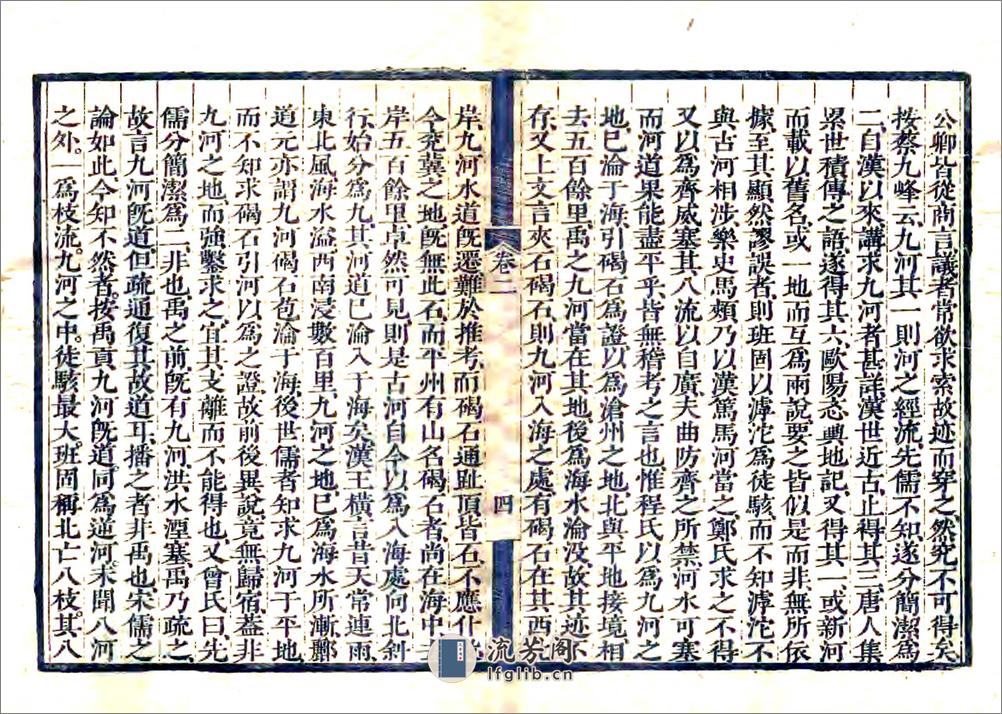 公卿皆從商言議者常欲求索故迹而穿之然究不可得矣
按蔡九峰云九河其一則河之經流先儒不知遂分簡潔爲
二自漢以來講求九河者甚詳漢世近古止得其三唐人集
累世積傳之語遂得其六歐陽忞輿地記又得其一或新河
而載以舊名或一地而互爲兩說要之皆似是而非無所依
據至其顯然謬誤者則班固以滹沱爲徒駭而不知滹沱不
與古河相涉樂史馬頰乃以漢篤馬河當之鄭氏求之不得
又以爲齊威塞其八流以自廣夫曲防齊之所禁河水可塞
而河道果能盡平乎皆無稽考之言也惟程氏以爲九河之
地已淪于海引碣石爲證以爲滄州之地北與平地接境相
去五百餘里禹之九河當在其地後爲海水淪没故其迹不
存又上文言夾石碣石則九河入海之處有碣石在其西
卷二
四
岸九河水道旣遷難於推考而碣石通趾頂皆石不應仆
今兗冀之地旣無此石而平州有山名碣石者尚在海中
岸五百餘里卓然可見則是古河自今以爲入海處向北斜
行始分爲九其河道已淪入于海矣漢王横言昔天常連雨
東北風海水溢西南浸數百里九河之地已爲海水所漸酈
道元亦謂九河碣石苞淪于海後世儒者知求九河于平地
而不知求碣石引河以爲之證故前後異說竟無歸宿蓋非
九河之地而強鑿求之宜其支離而不能得也又曾氏曰先
儒分簡潔爲二非也禹之前旣有九河洪水湮塞禹乃疏之
故言九河旣道但疏通復其故道耳播之者非禹也宋儒之
論如此今知不然者按禹貢九河旣道同爲逆河未聞八河
之外一爲枝流九河之中徒駭最大班固稱北亡八枝其八
流芳阁
lfglib.cn